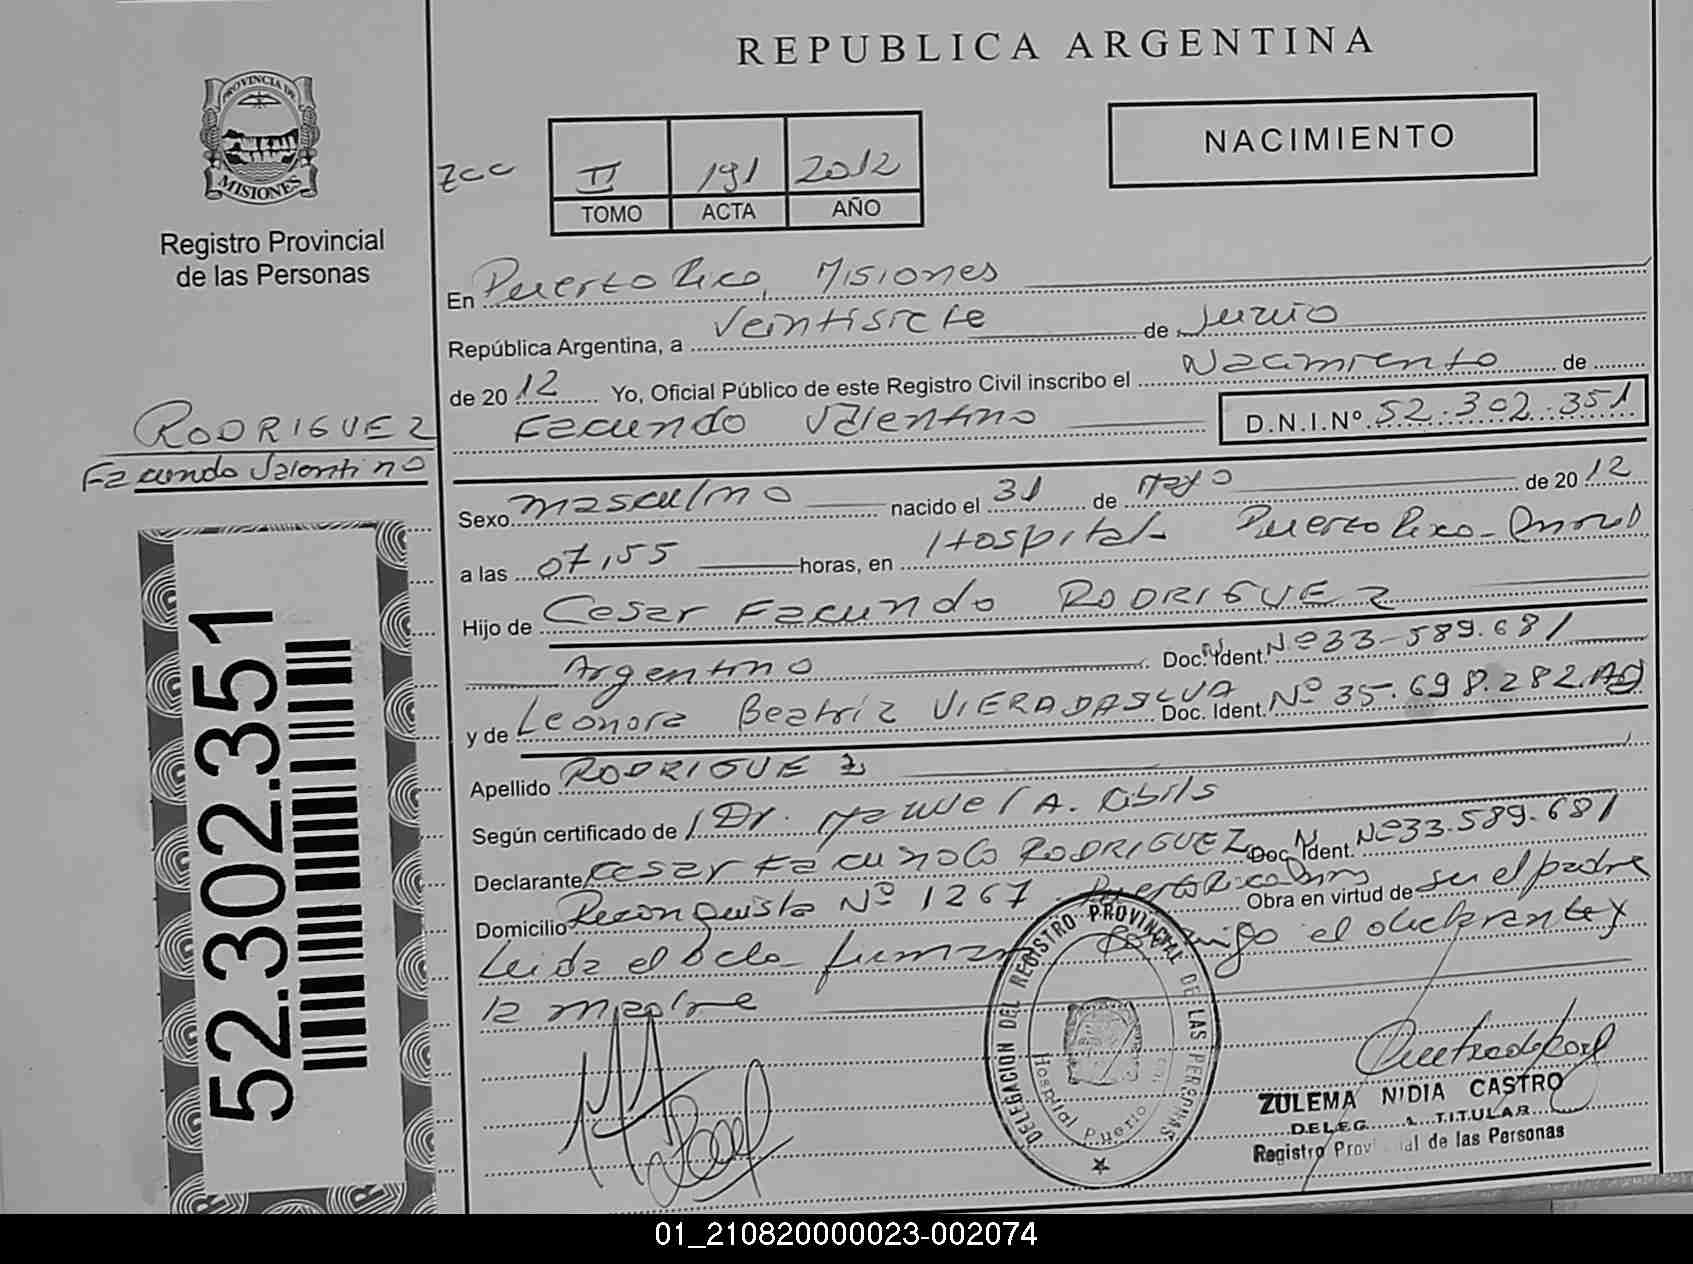 REPUBLICA ARGENTINA
PROVINCIA DE
MISIONES
Registro Provincial
de las Personas
NACIMIENTO
II 191 2012
TOMO ACTA AÑO
En Puerto Rico, Misiones
República Argentina, a Veintisiete de Junio
de 2012 Yo, Oficial Público de este Registro Civil inscribo el Nacimiento de
Facundo Valentino D.N.I.Nº 52.302.351
RODRIGUEZ
Facundo Valentino
Sexo masculino nacido el 31 de Mayo de 2012
a las 07,55 horas, en Hospital Puerto Rico
Hijo de Cesar Facundo RODRIGUEZ
Argentino Doc. Ident. Nº 33-589.681
y de Leonora Beatriz VIERADASILVA Doc. Ident. Nº 35.698.282
Apellido RODRIGUEZ
Según certificado de Dr. Manuel A.
Declarante Cesar Facundo RODRIGUEZ Doc. Ident. Nº 33.589.681
Domicilio Reconquista Nº 1267 Puerto Rico Obra en virtud de ser el padre
Leida el Acta firman conmigo el declarante y
la madre
52.302.351
DELEGACION DEL REGISTRO PROVINCIAL DE LAS PERSONAS
Hospital Puerto
ZULEMA NIDIA CASTRO
DELEG TITULAR
Registro Prov ial de las Personas
01_210820000023-002074